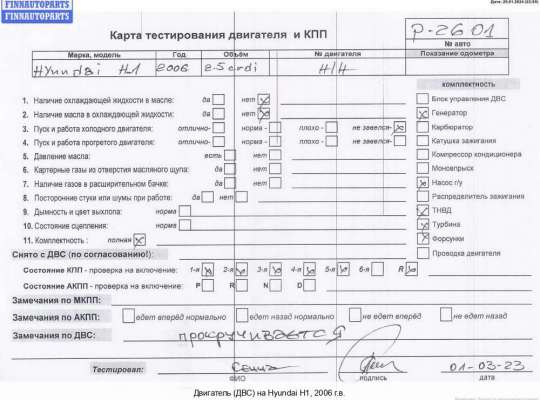 FINNAUTOPARTS
FINNAUTOPARTS
Карта тестирования двигателя и КПП
P-2601
№ авто
Марка, модель Год Объём № двигателя Показание одометра
Hyundai H1 2006 2.5 crdi Н/Н
комплектность
1. Наличие охлаждающей жидкости в масле: да нет
Блок управления ДВС
2. Наличие масла в охлаждающей жидкости: да нет
Генератор
3. Пуск и работа холодного двигателя: отлично- норма - плохо - не завелся-
Карбюратор
4. Пуск и работа прогретого двигателя: отлично- норма - плохо - не завелся-
Катушка зажигания
5. Давление масла: есть нет
Компрессор кондиционера
6. Картерные газы из отверстия масляного щупа: да нет
Моновпрыск
7. Наличие газов в расширительном бачке: да нет
Насос г/у
8. Посторонние стуки или шумы при работе: да нет
Распределитель зажигания
9. Дымность и цвет выхлопа: норма
ТНВД
10. Состояние сцепления: норма
Турбина
11. Комплектность : полная
Форсунки
Снято с ДВС (по согласованию!):
Проводка двигателя
Состояние КПП - проверка на включение: 1-я 2-я 3-я 4-я 5-я 6-я R
Состояние АКПП - проверка на включение: P R N D
Замечания по МКПП:
Замечания по АКПП: едет вперёд нормально едет назад нормально не едет вперёд не едет назад
Замечания по ДВС: прокручивается
Тестировал: 01-03-23
ФИО подпись дата
Двигатель (ДВС) на Hyundai H1, 2006 г.в.